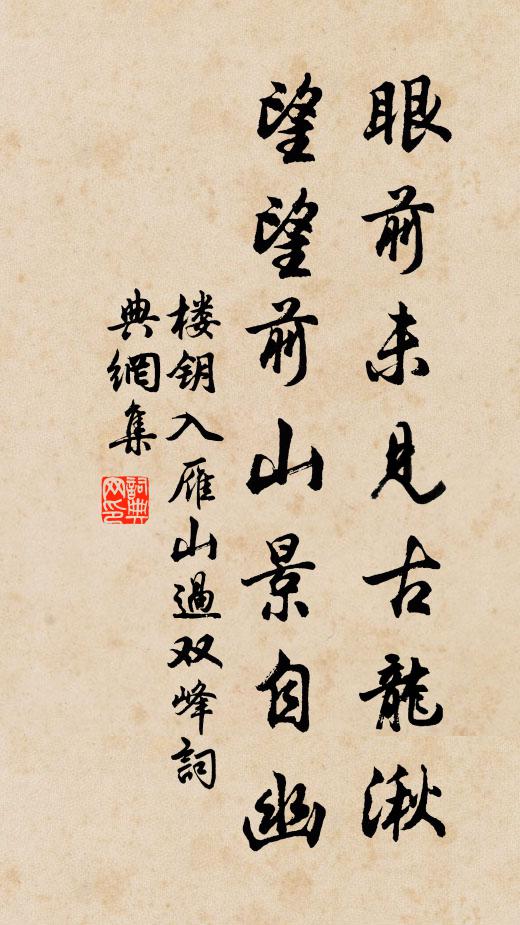 眼前未見古龍湫
望望前山景自幽
楼钥入雁山過双峰詞
典網集
詞典网印